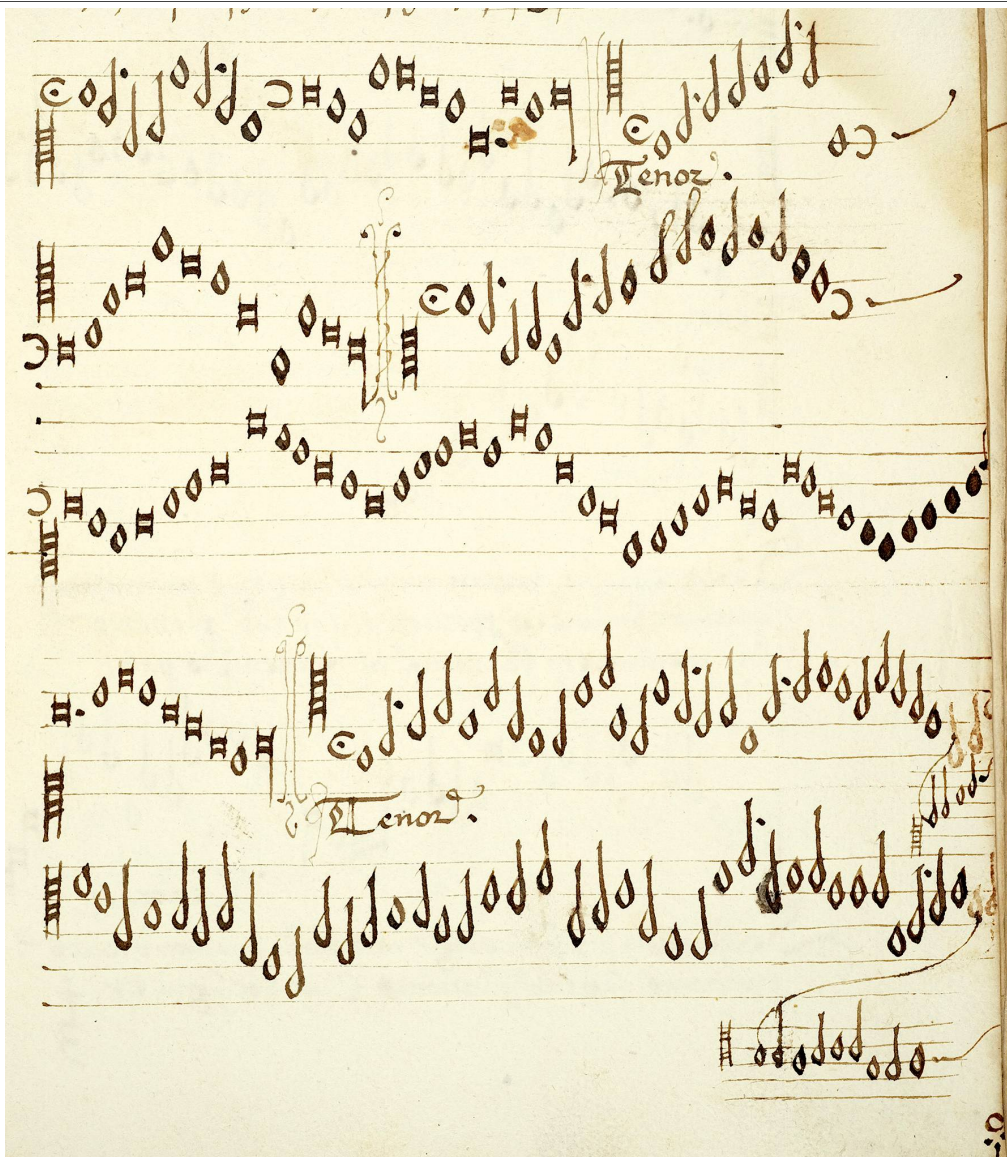 Tenor.
Tenor.